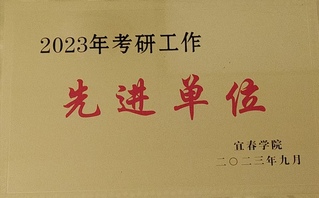 2023年考研工作
先进单位
宜春学院
二〇二三年九月